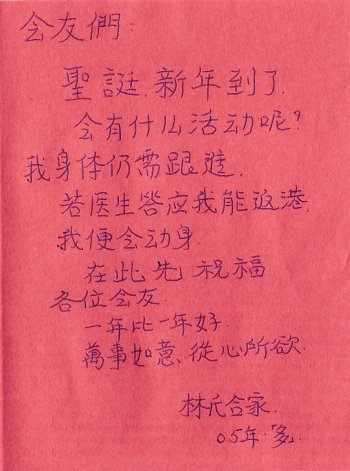 会友們：
聖誕．新年到了．
会有什么活动呢？
我身体仍需跟進．
若医生答应我能返港．
我便会动身．
在此先祝福
各位会友．
一年比一年好．
萬事如意、從心所欲．
林氏合家．
05年．冬．